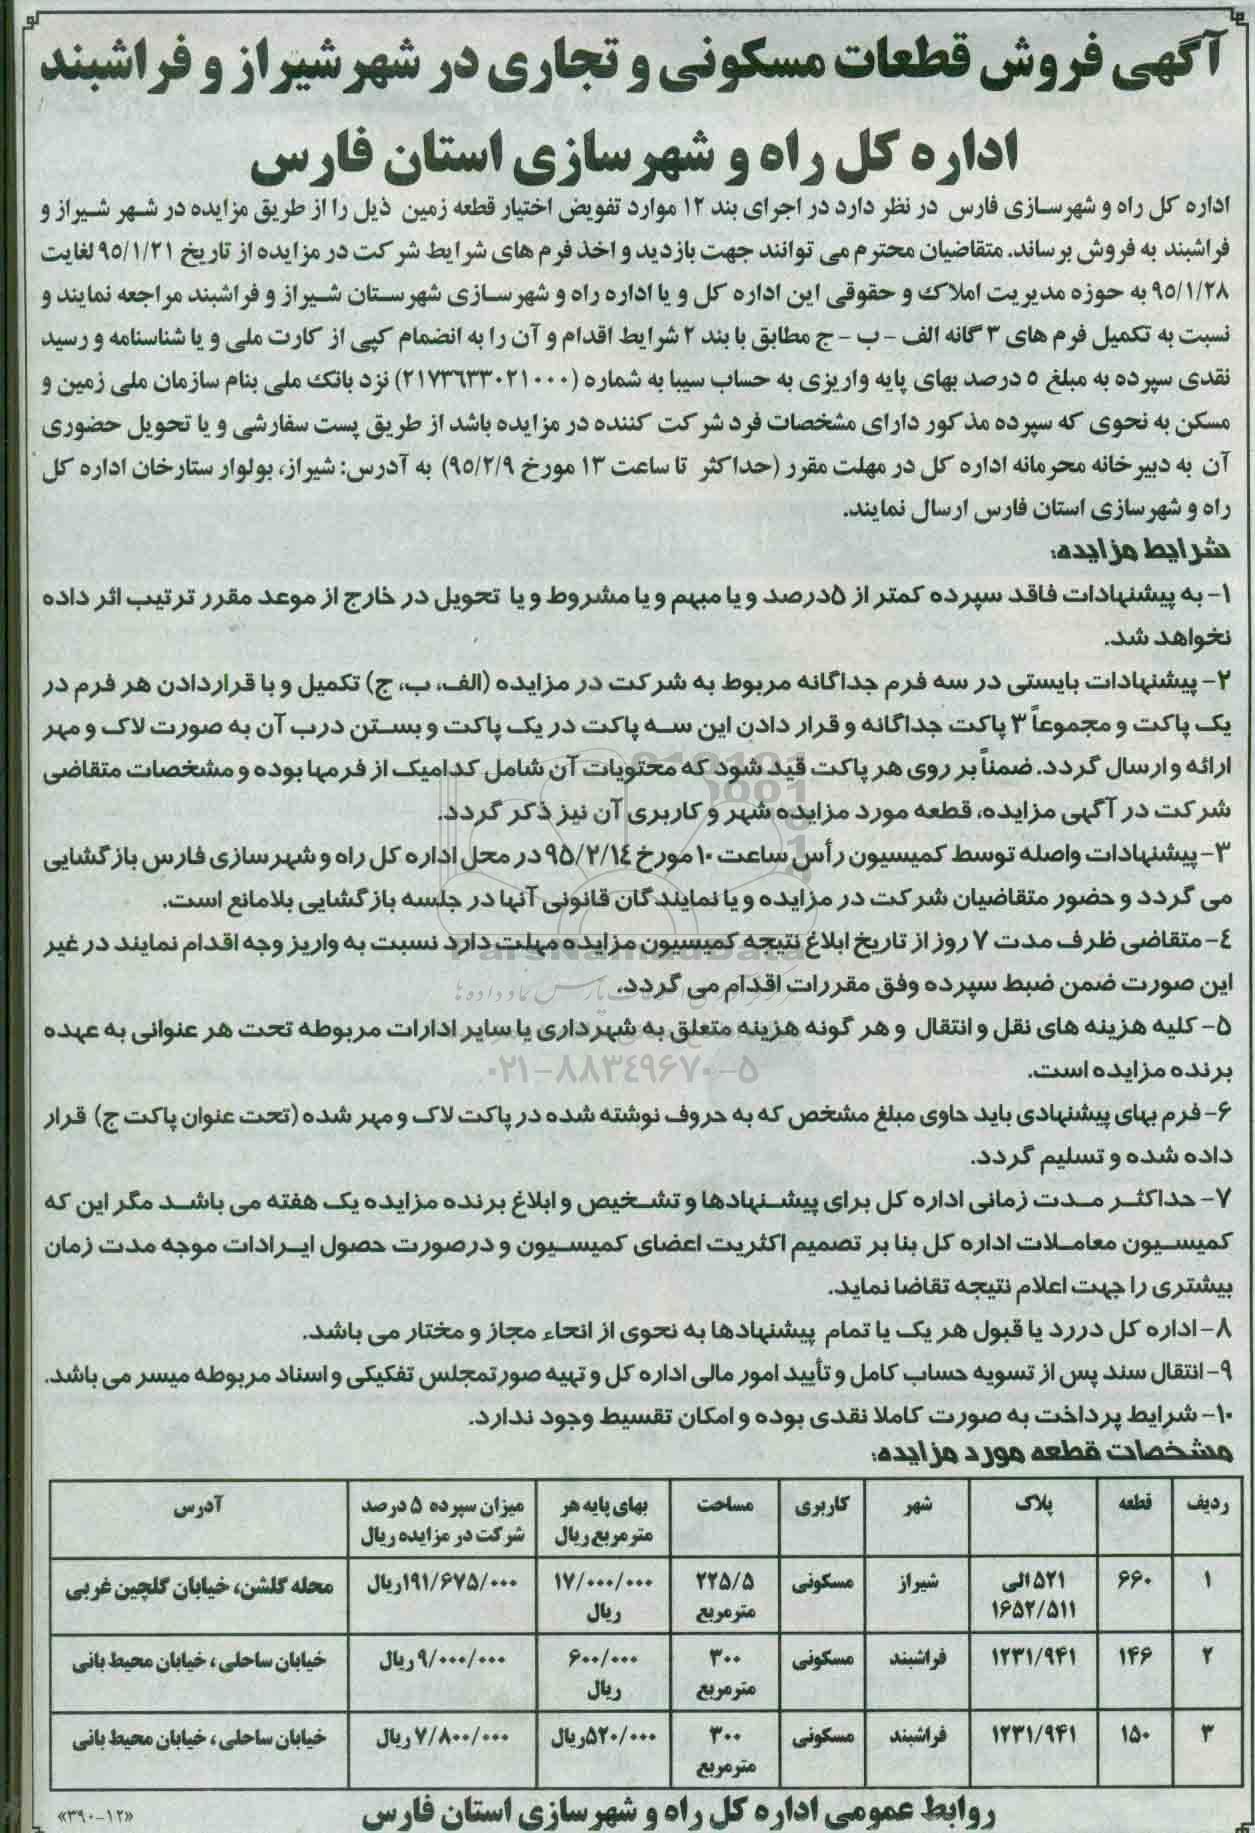 آگهی فروش قطعات مسکونی و تجاری در شهر شیراز و فراشبند
اداره کل راه و شهرسازی استان فارس
اداره کل راه و شهرسازی فارس در نظر دارد در اجرای بند ۱۲ موارد تفویض اختیار قطعه زمین ذیل را از طریق مزایده در شهر شیراز و
فراشبند به فروش برساند. متقاضیان محترم می توانند جهت بازدید و اخذ فرم های شرایط شرکت در مزایده از تاریخ ۹۵/۱/۲۱ لغایت
۹۵/۱/۲۸ به حوزه مدیریت املاک و حقوقی این اداره کل و یا اداره راه و شهرسازی شهرستان شیراز و فراشبند مراجعه نمایند و
نسبت به تکمیل فرم های ۳ گانه الف - ب - ج مطابق با بند ۲ شرایط اقدام و آن را به انضمام کپی از کارت ملی و یا شناسنامه و رسید
نقدی سپرده به مبلغ ۵ درصد بهای پایه واریزی به حساب سیبا به شماره (۲۱۷۳۶۳۳۰۲۱۰۰۰) نزد بانک ملی بنام سازمان ملی زمین و
مسکن به نحوی که سپرده مذکور دارای مشخصات فرد شرکت کننده در مزایده باشد از طریق پست سفارشی و یا تحویل حضوری
آن به دبیرخانه محرمانه اداره کل در مهلت مقرر (حداکثر تا ساعت ۱۳ مورخ ۹۵/۲/۹) به آدرس: شیراز، بولوار ستارخان اداره کل
راه و شهرسازی استان فارس ارسال نمایند.
شرایط مزایده:
۱- به پیشنهادات فاقد سپرده کمتر از ۵درصد و یا مبهم و یا مشروط و یا تحویل در خارج از موعد مقرر ترتیب اثر داده
نخواهد شد.
۲- پیشنهادات بایستی در سه فرم جداگانه مربوط به شرکت در مزایده (الف، ب، ج) تکمیل و با قراردادن هر فرم در
یک پاکت و مجموعاً ۳ پاکت جداگانه و قرار دادن این سه پاکت در یک پاکت و بستن درب آن به صورت لاک و مهر
ارائه و ارسال گردد. ضمناً بر روی هر پاکت قید شود که محتویات آن شامل کدامیک از فرمها بوده و مشخصات متقاضی
شرکت در آگهی مزایده، قطعه مورد مزایده شهر و کاربری آن نیز ذکر گردد.
۳- پیشنهادات واصله توسط کمیسیون رأس ساعت ۱۰ مورخ ۹۵/۲/۱۴ در محل اداره کل راه و شهرسازی فارس بازگشایی
می گردد و حضور متقاضیان شرکت در مزایده و یا نمایندگان قانونی آنها در جلسه بازگشایی بلامانع است.
۴- متقاضی ظرف مدت ۷ روز از تاریخ ابلاغ نتیجه کمیسیون مزایده مهلت دارد نسبت به واریز وجه اقدام نمایند در غیر
این صورت ضمن ضبط سپرده وفق مقررات اقدام می گردد.
۵- کلیه هزینه های نقل و انتقال و هر گونه هزینه متعلق به شهرداری یا سایر ادارات مربوطه تحت هر عنوانی به عهده
برنده مزایده است.
۰۲۱-۸۸۳۴۹۶۷۰-۵
۶- فرم بهای پیشنهادی باید حاوی مبلغ مشخص که به حروف نوشته شده در پاکت لاک و مهر شده (تحت عنوان پاکت ج) قرار
داده شده و تسلیم گردد.
۷- حداکثر مدت زمانی اداره کل برای پیشنهادها و تشخیص و ابلاغ برنده مزایده یک هفته می باشد مگر این که
کمیسیون معاملات اداره کل بنا بر تصمیم اکثریت اعضای کمیسیون و درصورت حصول ایرادات موجه مدت زمان
بیشتری را جهت اعلام نتیجه تقاضا نماید.
۸- اداره کل دررد یا قبول هر یک یا تمام پیشنهادها به نحوی از انحاء مجاز و مختار می باشد.
۹- انتقال سند پس از تسویه حساب کامل و تأیید امور مالی اداره کل و تهیه صورتمجلس تفکیکی و اسناد مربوطه میسر می باشد.
۱۰- شرایط پرداخت به صورت کاملا نقدی بوده و امکان تقسیط وجود ندارد.
مشخصات قطعه مورد مزایده:
ردیف قطعه پلاک شهر کاربری مساحت بهای پایه هر مترمربع ریال میزان سپرده ۵ درصد شرکت در مزایده ریال آدرس
۱ ۶۶۰ ۵۲۱ الی ۱۶۵۲/۵۱۱ شیراز مسکونی ۲۲۵/۵ مترمربع ۱۷/۰۰۰/۰۰۰ ریال ۱۹۱/۶۷۵/۰۰۰ریال محله گلشن، خیابان گلچین غربی
۲ ۱۴۶ ۱۲۳۱/۹۴۱ فراشبند مسکونی ۳۰۰ مترمربع ۶۰۰/۰۰۰ ریال ۹/۰۰۰/۰۰۰ ریال خیابان ساحلی، خیابان محیط بانی
۳ ۱۵۰ ۱۲۳۱/۹۴۱ فراشبند مسکونی ۳۰۰ مترمربع ۵۲۰/۰۰۰ریال ۷/۸۰۰/۰۰۰ ریال خیابان ساحلی، خیابان محیط بانی
روابط عمومی اداره کل راه و شهرسازی استان فارس
«۳۹۰-۱۲»